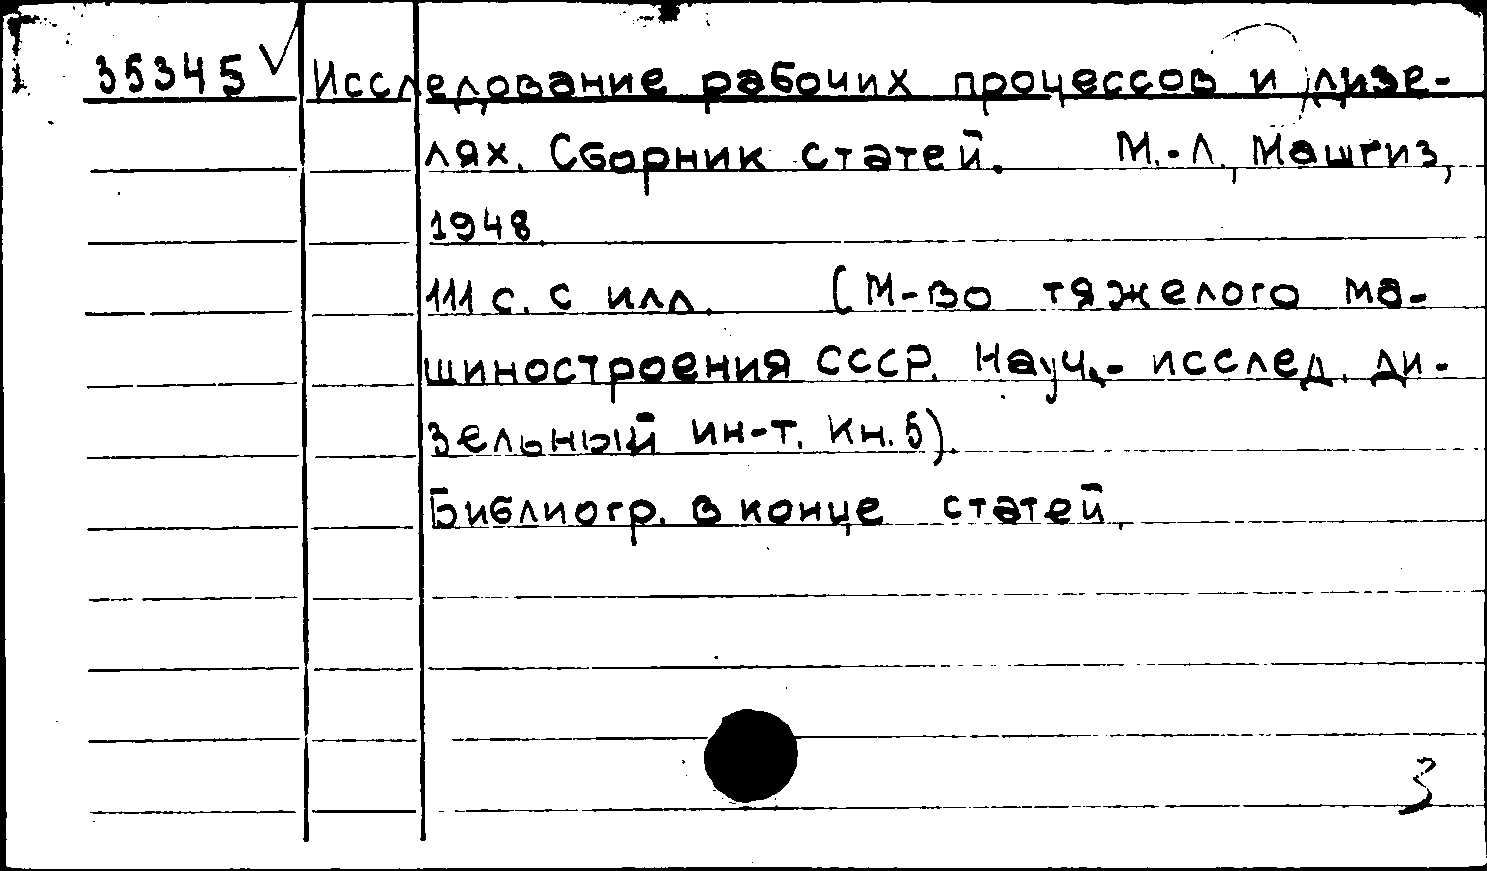 35345 ✓ Исследование рабочих процессов и дизе-
лях. Сборник статей. М.-Л., Машгиз,
1948.
111 с. с илл. (М-во тяжелого ма-
шиностроения СССР. Науч.- исслед. ди-
зельный ин-т. Кн. 5).
Библиогр. в конце статей.
3